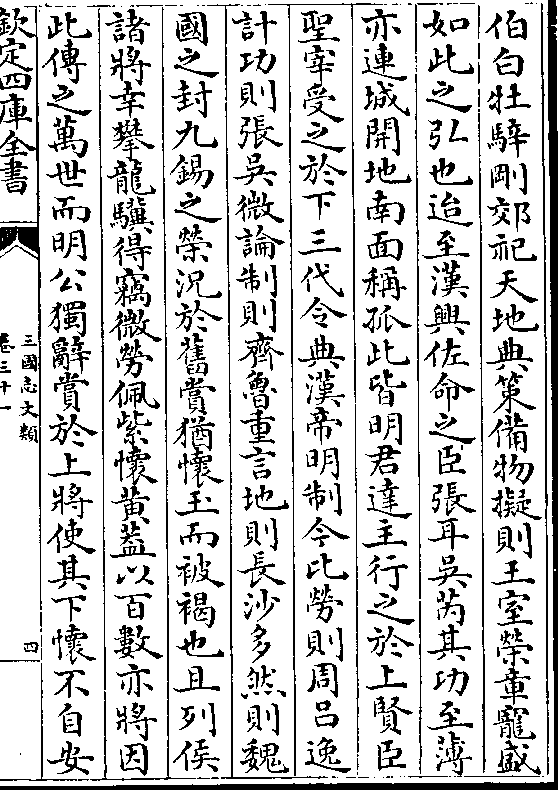 伯白牡騂剛郊祀天地典策備物擬則王室榮章寵盛
如此之弘也迨至漢興佐命之臣張耳吳芮其功至薄
亦連城開地南面稱孤此皆明君達主行之於上賢臣
聖宰受之於下三代令典漢帝明制今比勞則周呂逸
計功則張吳微論制則齊魯重言地則長沙多然則魏
國之封九錫之榮況於舊賞猶懷玉而被褐也且列侯
諸將幸攀龍驥得竊微勞佩紫懷黃蓋以百數亦將因
此傳之萬世而明公獨辭賞於上將使其下懷不自安
欽定四庫全書
三國志文類
卷三十一
四